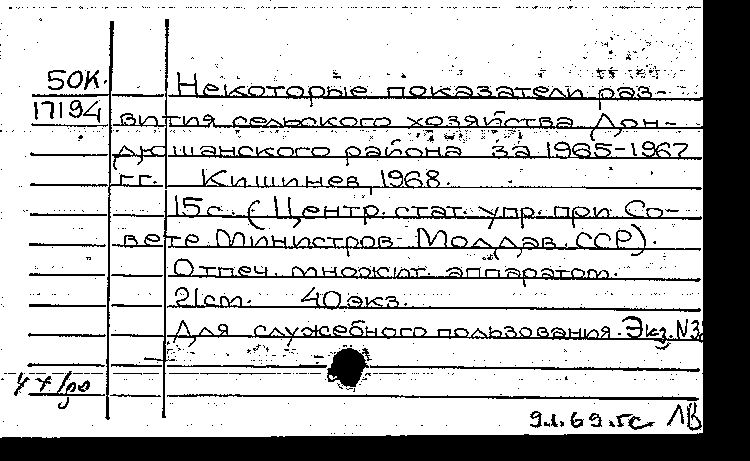 50К. Некоторые показатели раз-
17194 вития сельского хозяйства Дон-
дюшанского района за 1965-1967
гг. Кишинев, 1968.
15с. (Центр. стат. упр. при Со-
вете Министров Молдав. ССР).
Отпеч. множит. аппаратом.
21см. 40экз.
Для служебного пользования. Экз. N3
9.1.69.гс ЛВ